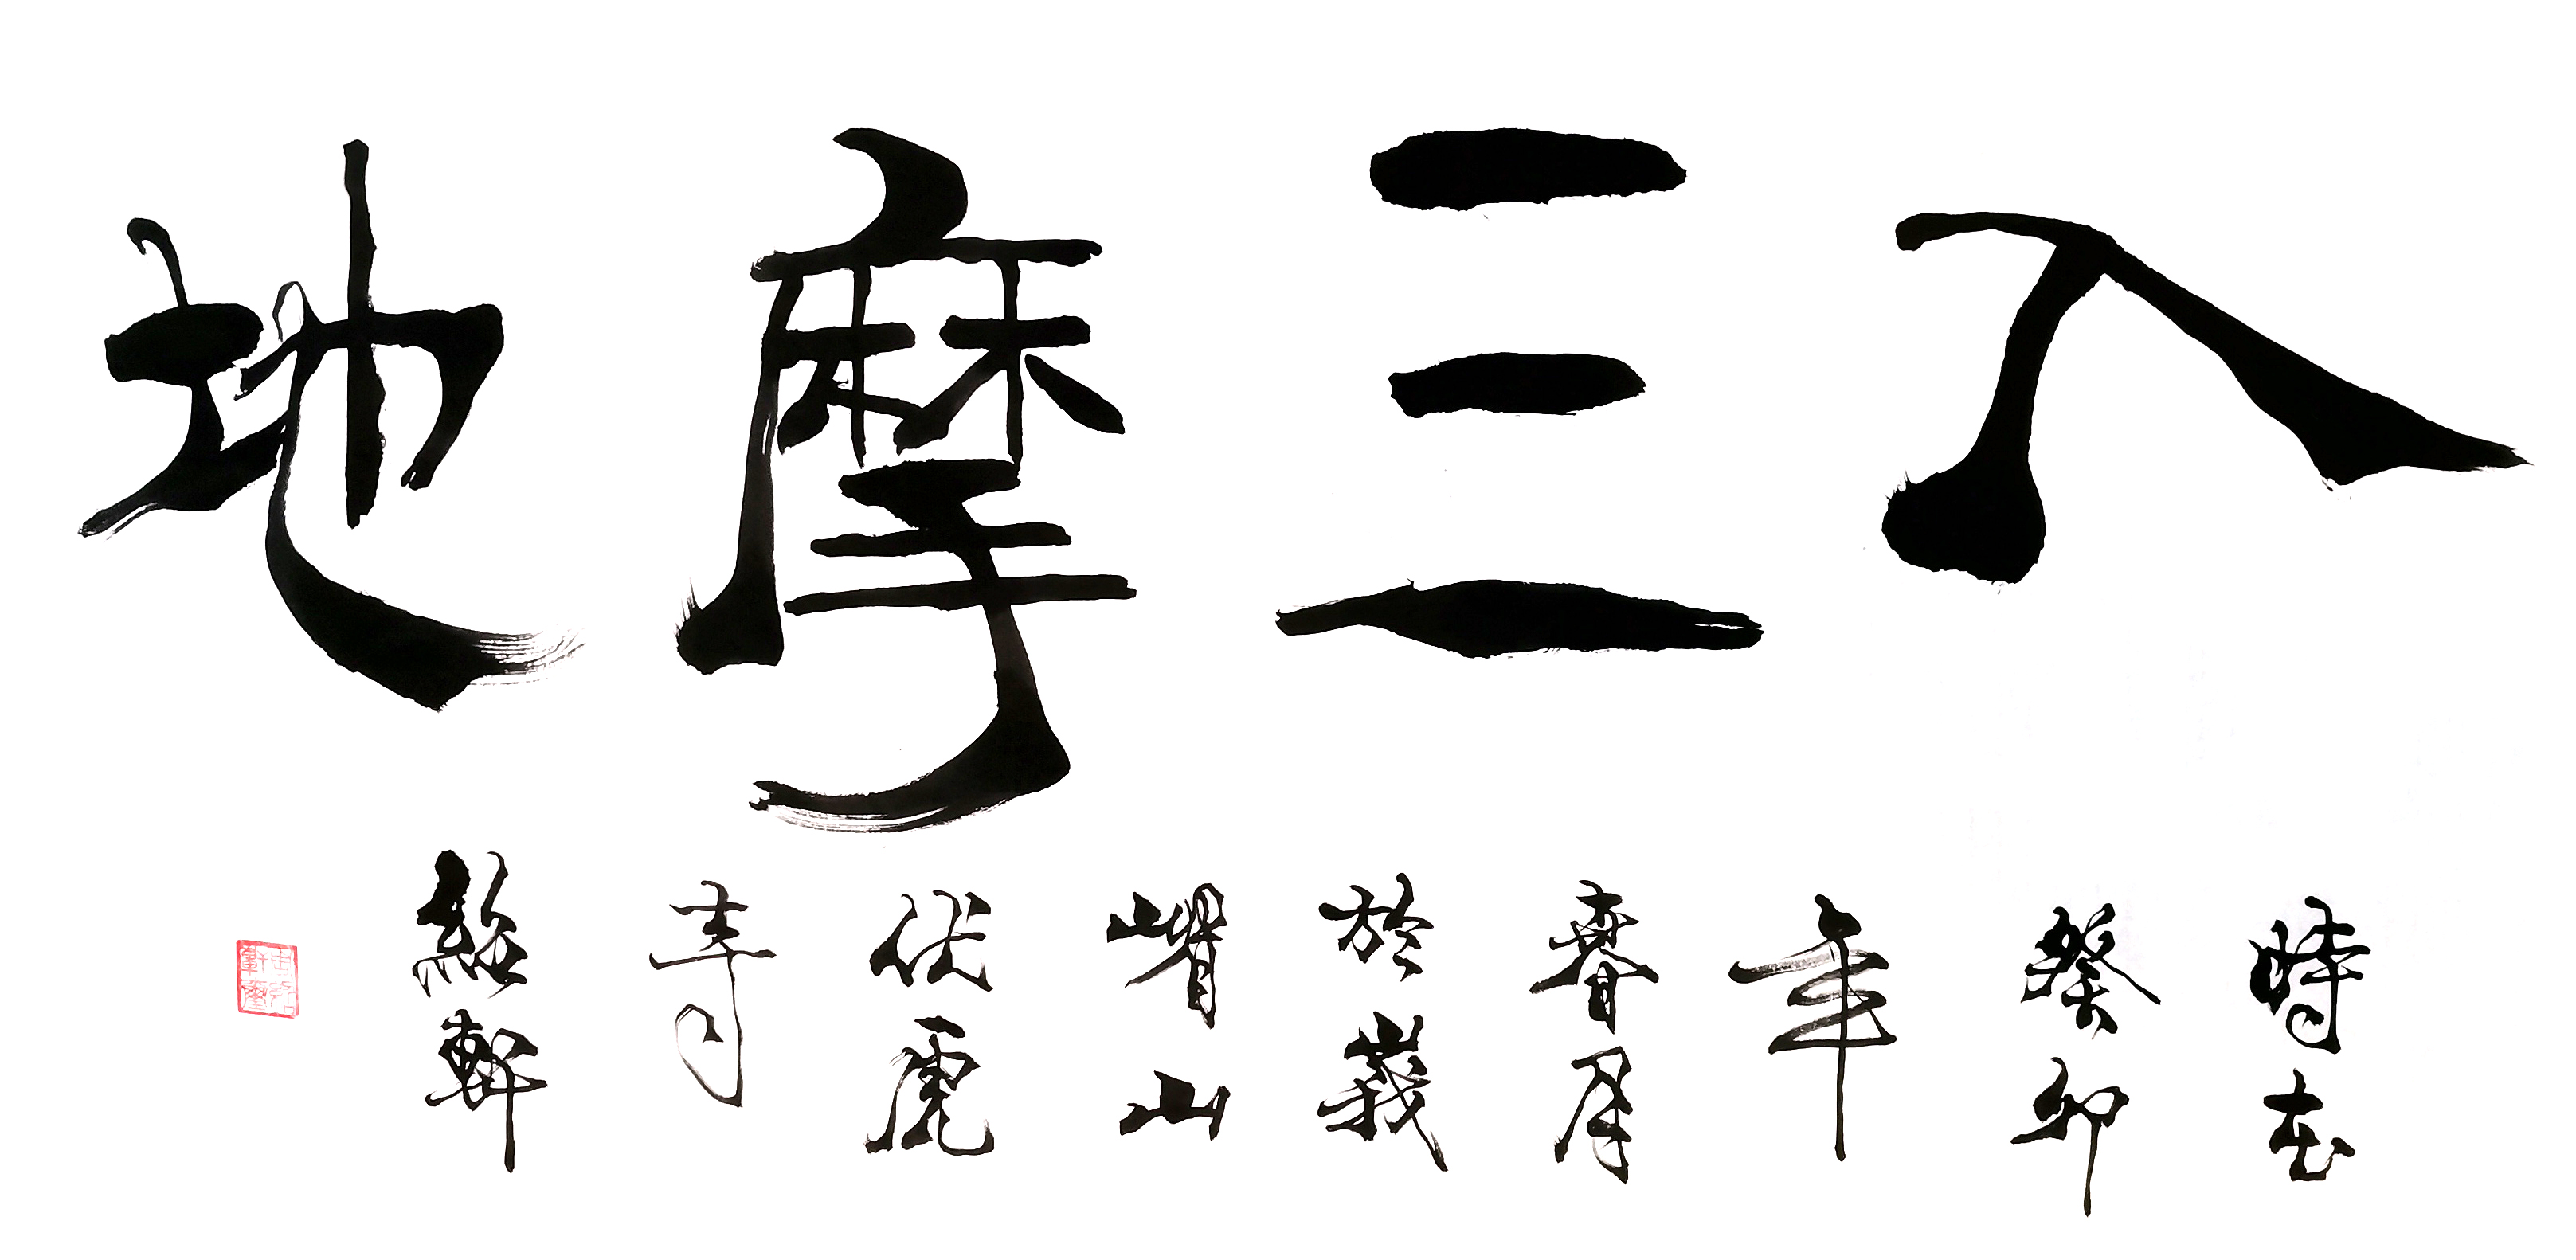 入三摩地
時在
癸卯
年
春月
於峩
嵋山
伏虎
寺
軒